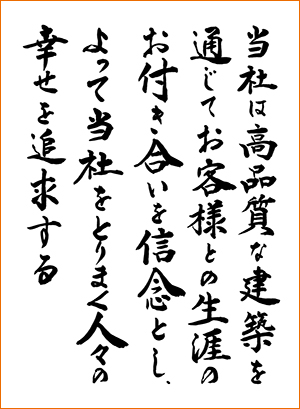 当社は高品質な建築を
通じてお客様との生涯の
お付き合いを信念とし、
よって当社をとりまく人々の
幸せを追求する